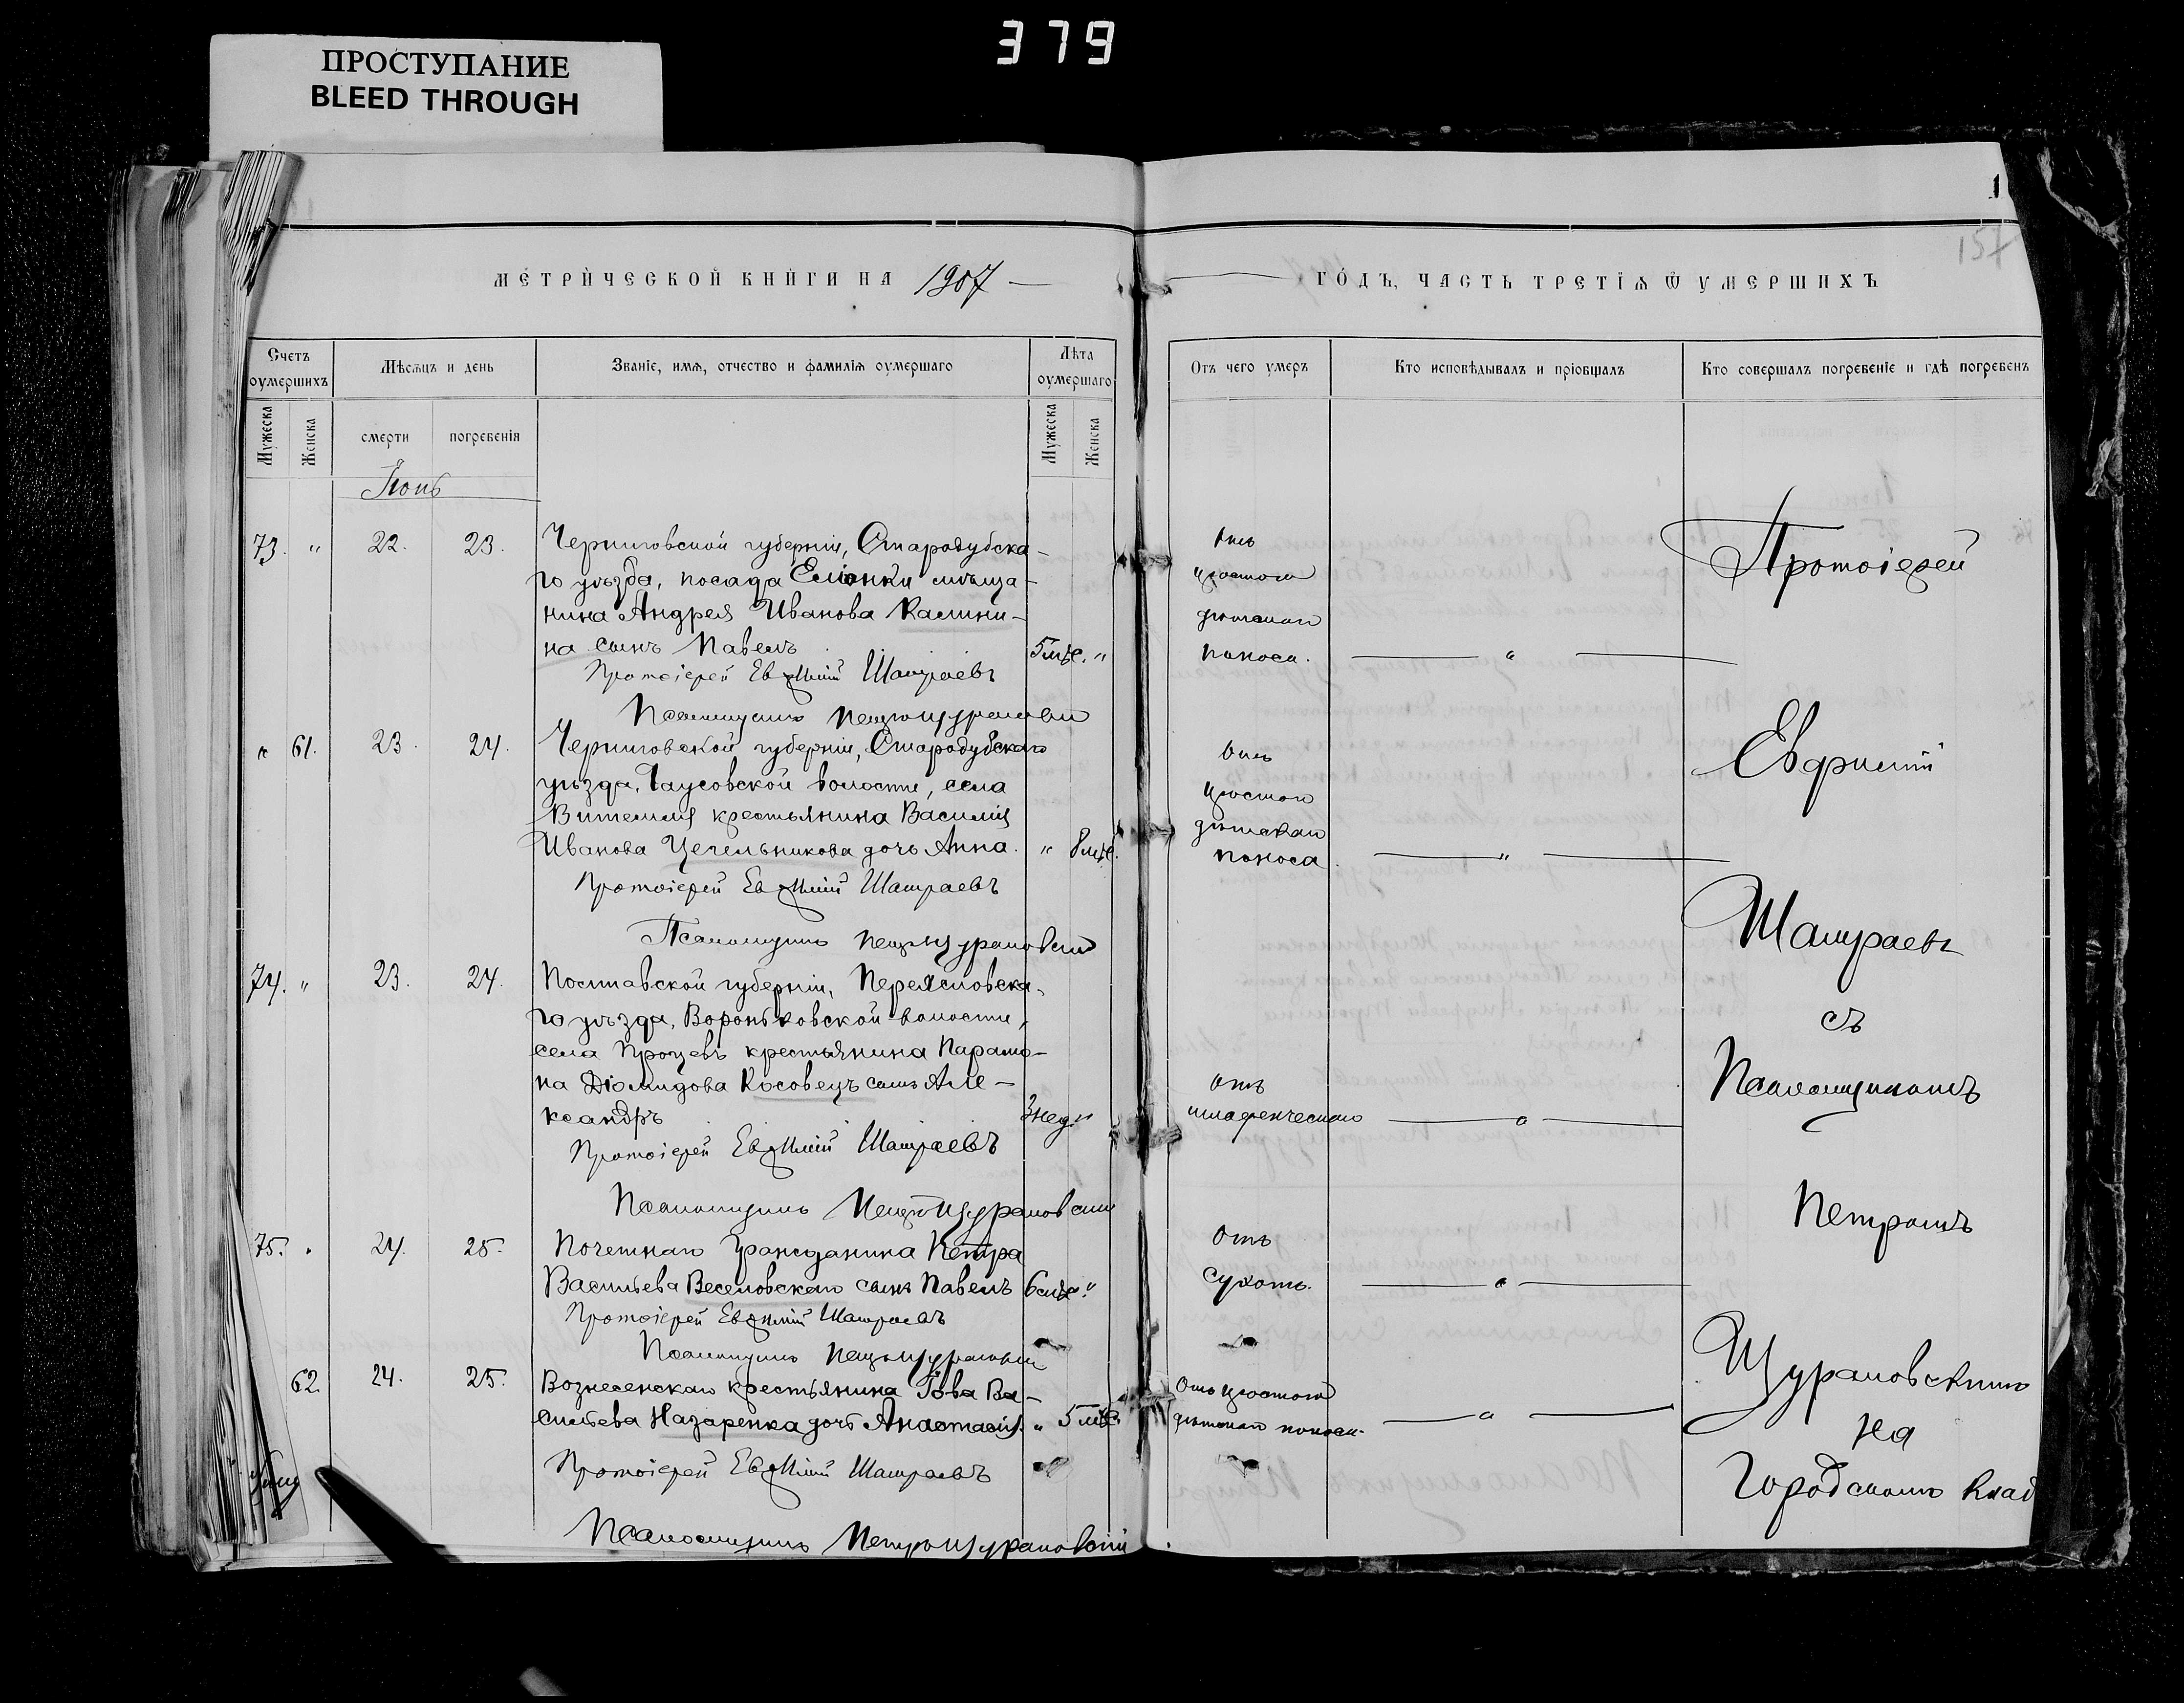 379
ПРОСТУПАНИЕ
BLEED THROUGH
1
157
МЕТРИЧЕСКОЙ КНИГИ НА 1907
ГОДЪ, ЧАСТЬ ТРЕТІЯ Ѿ УМЕРШИХЪ
Счетъ оумершихъ
Мѣсяцъ и день
Званіе, имя, отчество и фамилія оумершаго
Лѣта оумершаго
Отъ чего умеръ
Кто исповѣдывалъ и пріобщалъ
Кто совершалъ погребеніе и гдѣ погребенъ
Мужеска
Женска
смерти
погребенія
Мужеска
Женска
Іюнь
73. " 22. 23. Черниговской губерніи, Стародубска-
го уѣзда, посада Еліонки мѣща-
нина Андрея Иванова Калини-
на сынъ Павелъ 5 мѣс. "
Отъ
острого
дѣтскаго
поноса.
Протоіерей Евфимій Шатраевъ
Псаломщикъ Петръ Щурановскій
" 61. 23. 24. Черниговской губерніи, Стародубскаго
уѣзда, волости, села
Вителмля крестьянина Василія
Иванова Цегельникова дочь Анна. " 8 мѣс.
Отъ
острого
дѣтскаго
поноса.
Протоіерей Евфимій Шатраевъ
Псаломщикъ Петръ Щурановскій
74. " 23. 24. Полтавской губерніи, Переясловска-
го уѣзда, Вороньковской волости,
села Процевъ крестьянина Парамо-
на Діомидова Косовецъ сынъ Але-
ксандръ 3 нед. "
отъ
младенческаго
Протоіерей Евфимій Шатраевъ
Псаломщикъ Петръ Щурановскій
75. " 24. 25. Почетнаго Гражданина Петра
Васильева Веселовскаго сынъ Павелъ 6 мѣс. "
Отъ
сухотъ.
Протоіерей Евфимій Шатраевъ
Псаломщикъ Петръ Щурановскій
62. 24. 25. Вознесенскаго крестьянина Іова Ва-
сильева Назаренка дочь Анастасія. " 5 мѣс.
Отъ острого
дѣтскаго поноса.
Протоіерей Евфимій Шатраевъ
Псаломщикъ Петръ Щурановскій
Протоіерей
Евфимій
Шатраевъ
съ
Псаломщикомъ
Петромъ
Щурановскимъ
на
Городскомъ клад